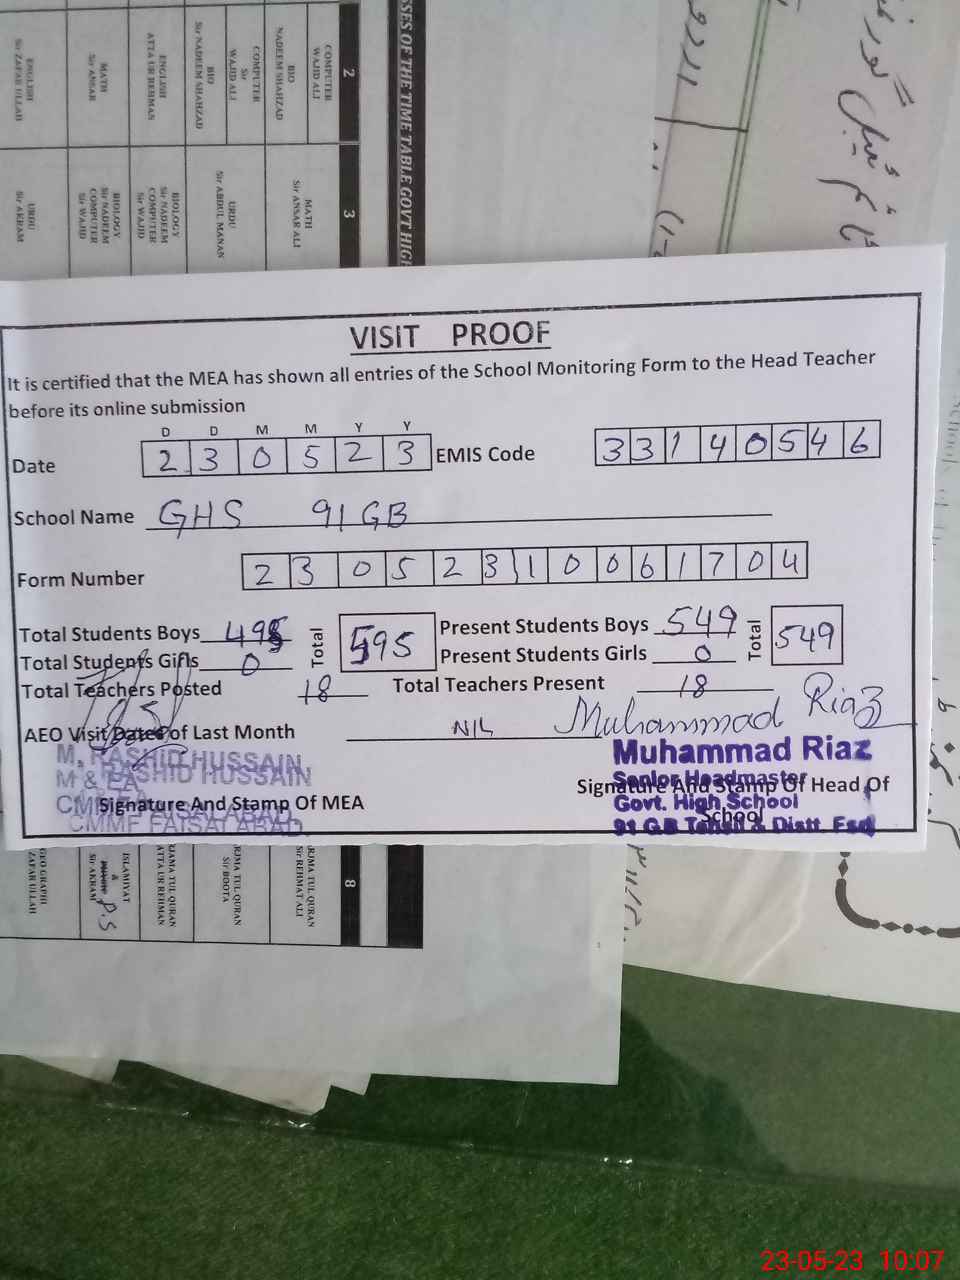 SSES OF THE TIME TABLE GOVT HIGH
2
COMPUTER
WAJID ALI
BIO
NADEEM SHAHZAD
COMPUTER
Sir
WAJID ALI
BIO
Sir NADEEM SHAHZAD
ENGLISH
ATTA UR REHMAN
MATH
Sir ANSAR
ENGLISH
Sir ZAFAR ULLAH
3
MATH
Sir ANSAR ALI
URDU
Sir ABDUL MANAN
BIOLOGY
Sir NADEEM
COMPUTER
Sir WAJID
BIOLOGY
Sir NADEEM
COMPUTER
Sir WAJID
URDU
Sir AKRAM
VISIT PROOF
It is certified that the MEA has shown all entries of the School Monitoring Form to the Head Teacher
before its online submission
D D M M Y Y
Date 2 3 0 5 2 3 EMIS Code 3 3 1 4 0 5 4 6
School Name GHS 91 GB
Form Number 2 3 0 5 2 3 1 0 0 6 1 7 0 4
Total Students Boys Total 595 Present Students Boys 549 Total 549
Total Students Girls 0 Present Students Girls 0
Total Teachers Posted 18 Total Teachers Present 18
AEO Visit Dates of Last Month NIL Muhammad Riaz
M. RASHID HUSSAIN
Signature And Stamp Of MEA
CMMF FAISALABAD
Muhammad Riaz
Senior Headmaster
Signature And Stamp Of Head Of
Govt. High School
School
91 GB Tehsil & Distt. Fsd
8
RJMA TUL QURAN
Sir REHMAT ALI
RJMA TUL QURAN
Sir BOOTA
JAMA TUL QURAN
ATTA UR REHMAN
ISLAMIYAT
&
Sir AKRAM
P.S
GEO GRAPHI
ZAFAR ULLAH
23-05-23 10:07